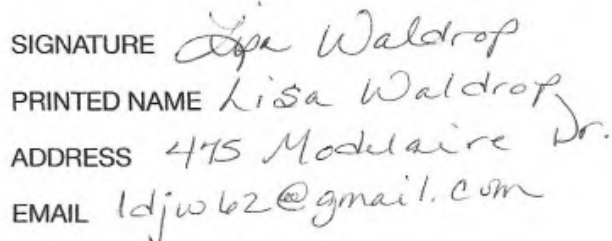 SIGNATURE Lisa Waldrop
PRINTED NAME Lisa Waldrop
ADDRESS 475 Modelaire Dr.
EMAIL ldjw62@gmail.com